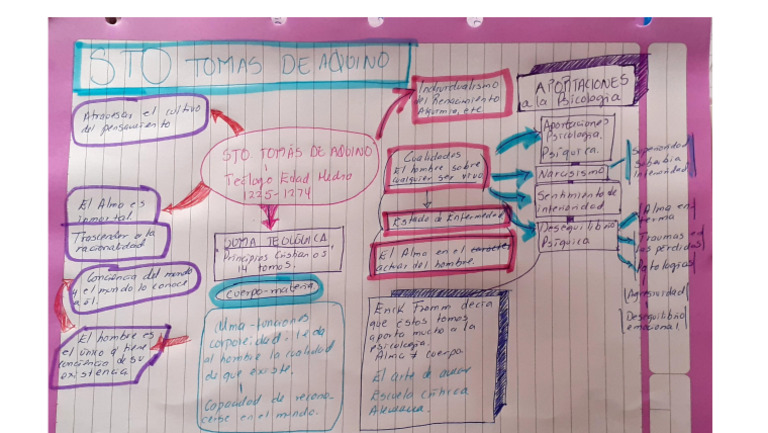 STO TOMAS DE AQUINO
Atraces el cultivo
del pensamiento
STO. TOMÁS DE AQUINO
Teólogo Edad Media
1225-1274
Individualismo
del Renacimiento
etc
APORTACIONES
a la Psicología
El Alma es
inmortal.
Trascender a la
racionalidad
Conciencia del mundo
y el mundo lo conoce
a él.
El hombre es
el único q tiene
conciencia de su
existencia
SUMA TEOLÓGICA,
Principios Cristianos
14 tomos.
Cuerpo-materia
Alma-funciones
corporeidad, le da
al hombre la cualidad
de que existe.
Capacidad de recono-
cerse en el mundo.
Cualidades
El hombre sobre
cualquier ser vivo
Estado de Enfermedad
El Alma en el caracter
activar del hombre.
Aportaciones
Psicología.
Psíquica.
Narcisismo
Sentimiento de
inferioridad
Desequilibrio
Psíquica
Superioridad
Soberbia
Inferioridad
Alma en-
ferma
Traumas en
las perdidas
Patologías
Agresividad
Desequilibrio
emocional.
Erick Fromm decía
que estos tomos
aporta mucho a la
psicología.
Alma ≠ cuerpo.
El arte de amar
Escuela crítica
Alemana.